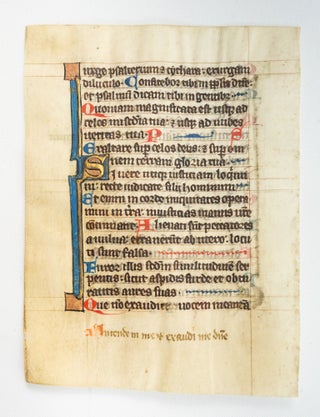 exurgo psalterium & cythara: exurgam
diluculo. Confitebor tibi in populis dne:
et psalmum dicam tibi in gentibus
Quoniam magnificata est usqz ad
celos misericordia tua: & usqz ad nubes
ueritas tua.
Exaltare super celos deus: & super om
nem terram gloria tua.
Si uere utiqz iusticiam loqmini
recte iudicate filii hominum
Et enim in corde iniquitates opera
mini in terra: iniusticias manus ure
continnant. Alienati sunt peccatores
a uulua: errauerunt ab utero: locuti
sunt falsa.
Furor illis scdm similitudinem ser
pentis: sicut aspidis surde et obtu
rantis aures suas.
Que non exaudiet uocem incanta
Intende in me & exaudi me dne